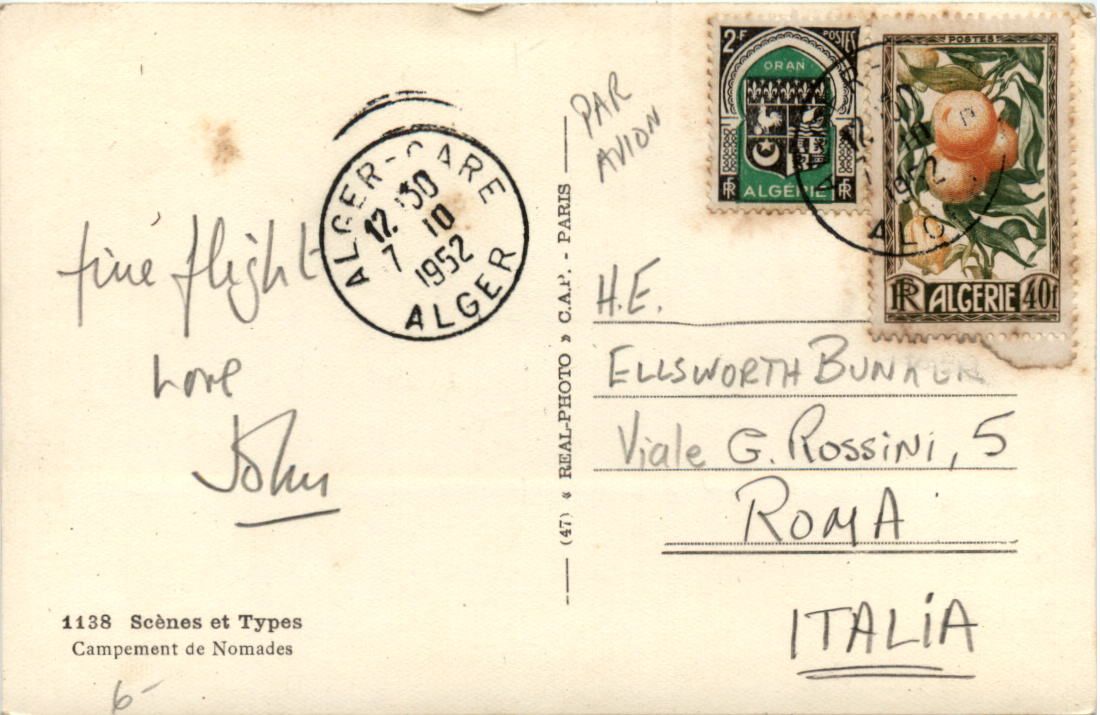 fine flight
Love
John
1138 Scènes et Types
Campement de Nomades
6-
ALGER-GARE
12.30
7 10
1952
ALGER
(47) « REAL-PHOTO » C.A.P. - PARIS
PAR
AVION
2F POSTES
ORAN
RF ALGÉRIE RF
POSTES
RF ALGÉRIE 40f
12 30
7 10
1952
H.E.
ELLSWORTH BUNKER
Viale G. Rossini, 5
ROMA
ITALIA